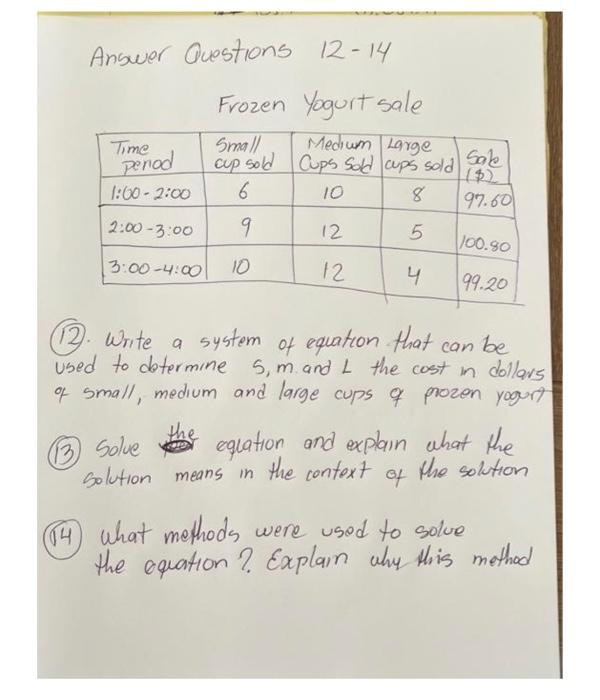 Answer Questions 12-14
Frozen Yogurt sale
Time period Small cup sold Medium Cups Sold Large cups sold Sale ($)
1:00-2:00 6 10 8 97.60
2:00-3:00 9 12 5 100.80
3:00-4:00 10 12 4 99.20
12. Write a system of equation that can be
used to determine S, m. and L the cost in dollars
of small, medium and large cups of frozen yogurt
13 Solve the equation and explain what the
Solution means in the context of the solution
14 what methods were used to solve
the equation? Explain why this method